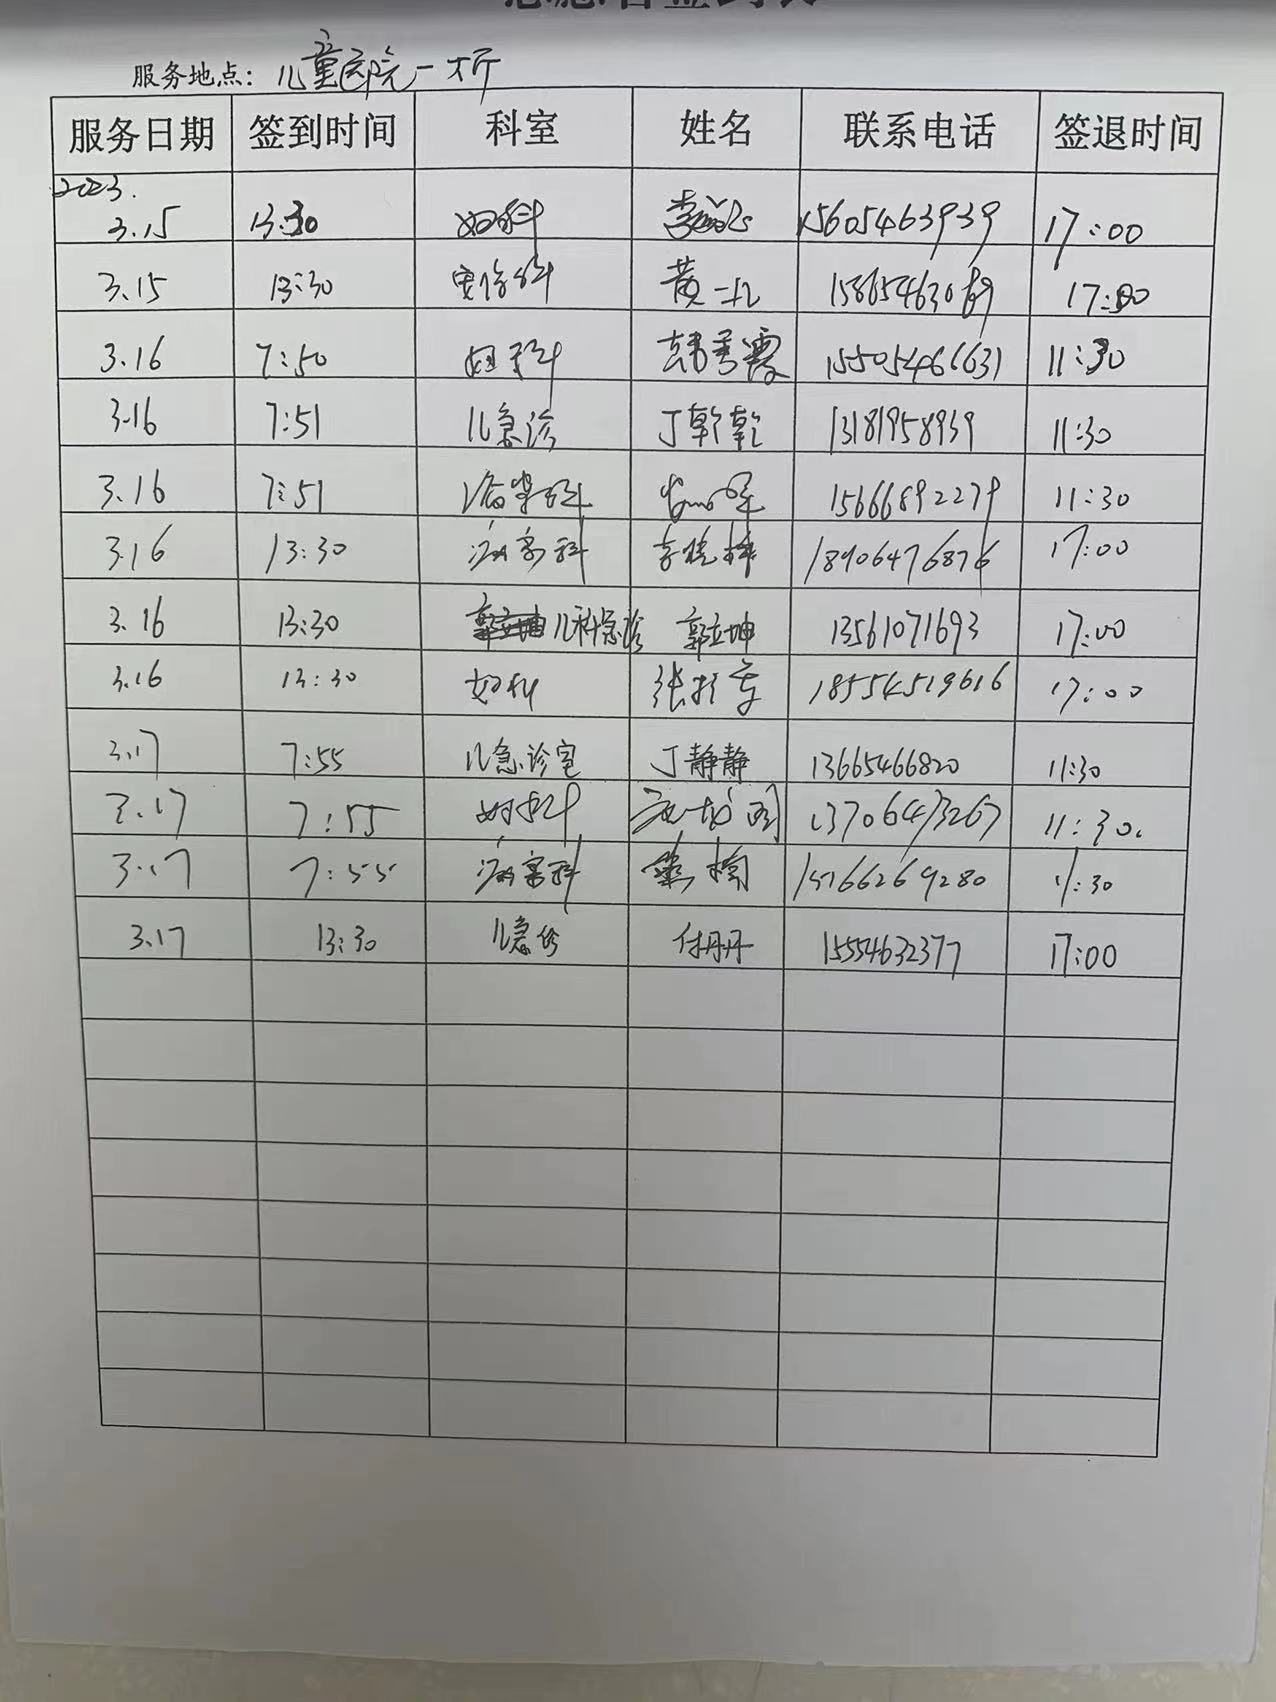 服务地点：儿童医院一大厅
服务日期 签到时间 科室 姓名 联系电话 签退时间
2023.
3.15 13:30 妇科 李 15605463939 17:00
3.15 13:30 科 黄 15865463069 17:00
3.16 7:50 妇科 韩秀霞 15505466631 11:30
3.16 7:51 儿急诊 丁乾乾 13181958939 11:30
3.16 7:51 病案科 15666892279 11:30
3.16 13:30 病案科 李 18906476876 17:00
3.16 13:30 儿科急诊 郭立坤 13561071693 17:00
3.16 13:30 妇科 张 18554519616 17:00
3.17 7:55 儿急诊室 丁静静 13665466820 11:30
3.17 7:55 妇科 13706473267 11:30.
3.17 7:55 病案科 楠 15766269280 11:30
3.17 13:30 儿急诊 付丹丹 15554632377 17:00